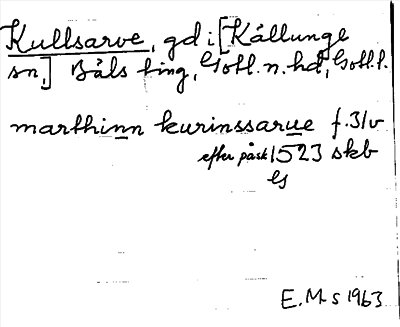 Kullsarve, gd i [Källunge
sn,] Bäls ting, Gotl. n. hd, Gotl. l.
marthinn kurinssarue f. 3/v
efter påsk 1523 skb
G
E.M-s 1963